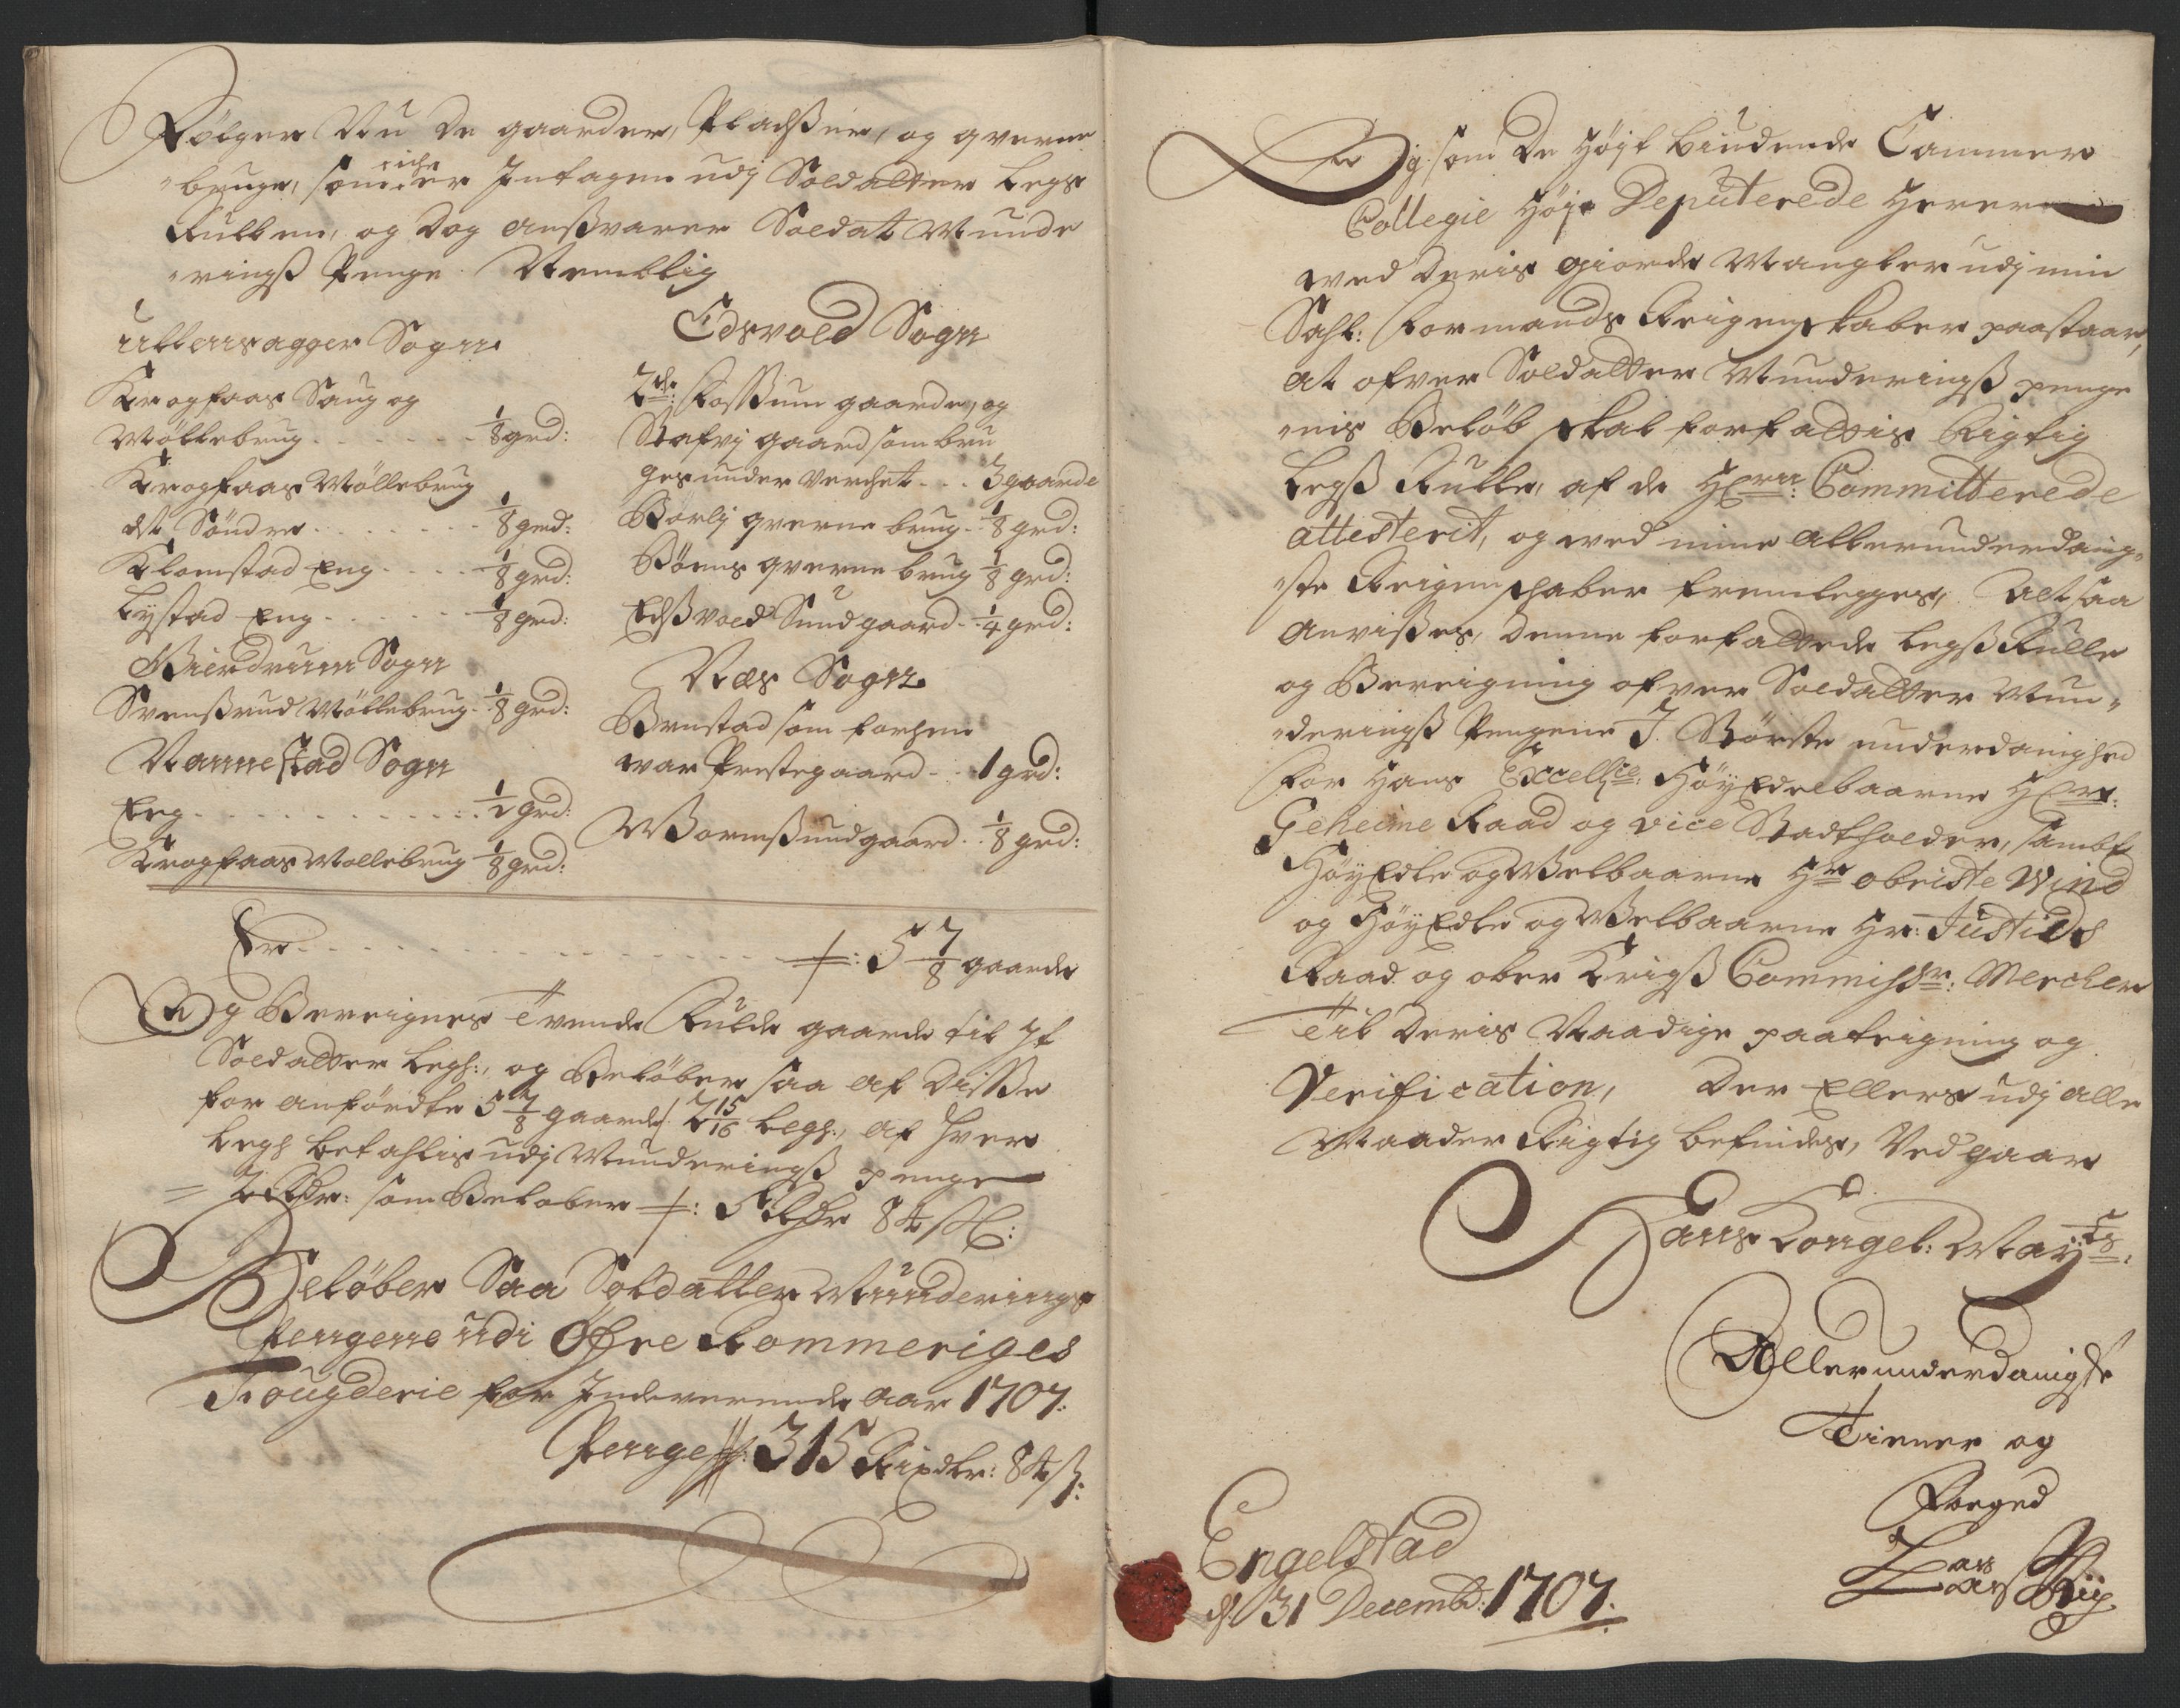 Følger Nu De gaarder, Pladsser, og qverne
bruger, som iche er Indtagen udj Soldatter Legs
Rullen, og Dog anssvarer Soldat Munde
ringss Penge. Nemblig
Ullensagger Sogn
Krogfaas Saug og
Møllebrug . . . . . . 1/8 grd:
Krogfaas Møllebrug
dt Söndre . . . . . . 1/8 grd:
Klomstad Eng . . . . 1/8 grd:
Lystad Eng . . . . . 1/8 grd:
Gierdrum Sogn
Svenssrud Møllebrug . 1/8 grd:
Nannestad Sogn
Eeg . . . . . . . . . . . 1/2 grd:
Krogfaas Møllebrug 1/8 grd:
Edsvold Sogn
2de: Fossum gaarde, og
Stafvj gaard som bru
ges under Verchet . . . 3 gaarde
Børlj qverne brug . 1/8 grd:
Bøens qverne brug 1/8 grd:
Edssvold Sundgaard . . 1/4 grd:
Næs Sogn
Brustad som forhen
war Prestegaard . . 1 grd:
Wormssundgaard . 1/8 grd:
Er . . . . . . . . . . . . . . . 5 7/8 gaarde
Og Bereignes Tvende Fulde gaarde til it
Soldatter Legh:, og Beløber saa af Disse
for anførdte 5 7/8 gaarde 2 15/16 Legh:, af hver
Legh betahlis udj Munderingss penge
2 Rdr: som Beløber 5 Rdr 84 ß:
Beløber Saa Soldatter Munderings
Pengene udi Öfre Rommeriges
Fougderie for Indeverende Aar 1707:
Penge 315 Rixdlr: 84 ß:
Og som De Høyt biudende Cammer
Collegie Høye Deputerede Herer
wed Deris giorde Mangler udj min
Sahl: Formands Reigenskaber paastaar,
at ofver Soldatter Munderingss penge
nis Beløb skal forfattis Rigtig
Legss Rulle, af de Herrer: Committerede
attesterit, og wed mine allerunderdanig
ste Reigenschaber fremlegges, Altsaa
Anvisses, Denne forfattede Legss Rulle
og Bereigning ofver Soldatter Mun
deringss Pengene J. Største underdanighed
for Hans Excellce: HøyEdelbaarne Herr:
Geheime Raad og Vice Stadtholder, sambt
HøyEdle og Welbaarne Hr obriste Wind
og HøyEdle og Welbaarne Hr: Justids
Raad og ober Krigss Commissr: Mercker
Till Deris Naadige paateigning og
Verification, Der Ellers udj alle
Maader Rigtig befindes, Vedgaar
Hans Kongel: Mayts:
Allerunderdanigste
Tiener og
Foeged
Engelstad
d: 31 Decembr: 1707.